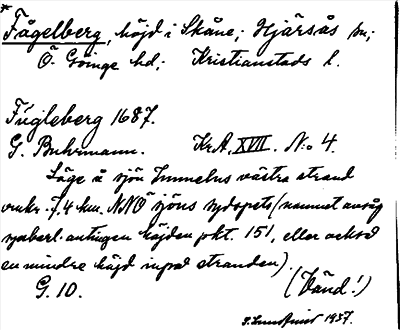 * Fågelberg, höjd i Skåne; Hjärsås sn;
Ö. Göinge hd; Kristianstads l.
Fúgleberg 1687.
G. Buhrmann. KrA, XVII. N:o 4.
Läge å sjön Immelns västra strand
omkr. 7,4 km. NNÖ sjöns sydspets (namnet avsåg
synberl. antingen höjden pkt. 151, eller också
en mindre höjd invid stranden).
G. 10. (Vänd!)
1937.